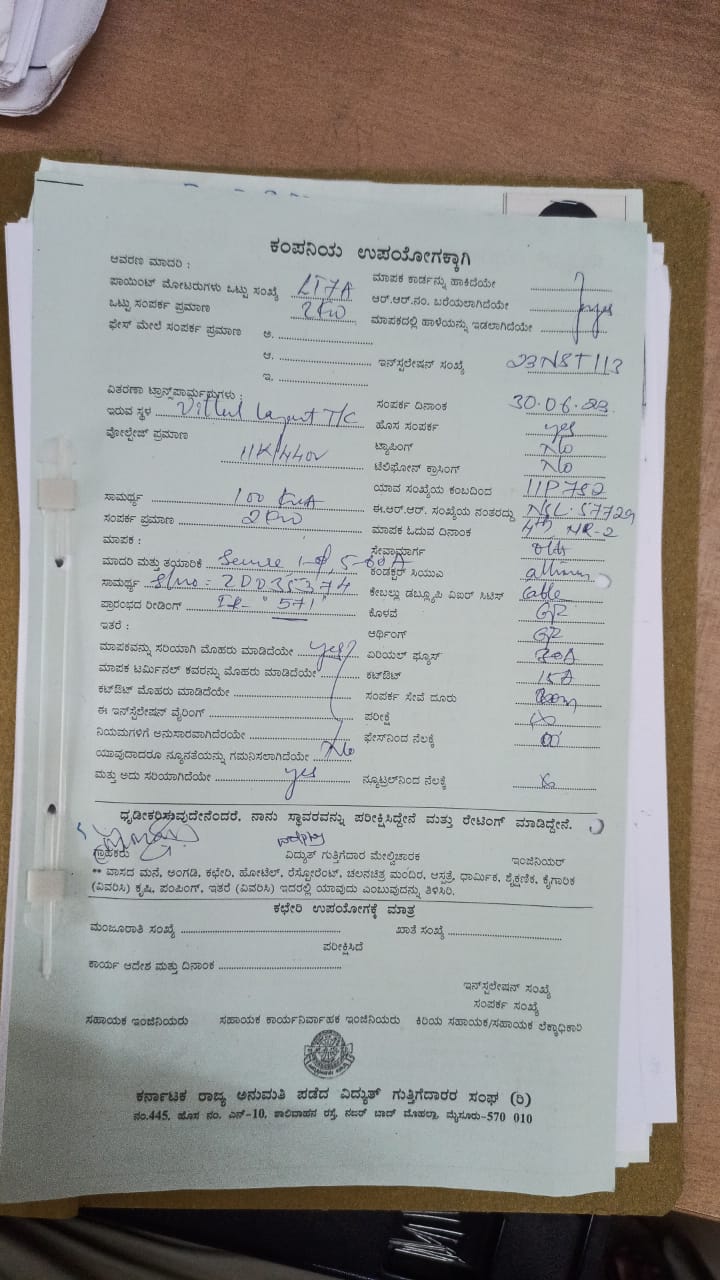 ಕಂಪನಿಯ ಉಪಯೋಗಕ್ಕಾಗಿ
ಆವರಣ ಮಾದರಿ :
ಮಾಪಕ ಕಾರ್ಡನ್ನು ಹಾಕಿದೆಯೇ
ಪಾಯಿಂಟ್ ಮೋಟರುಗಳು ಒಟ್ಟು ಸಂಖ್ಯೆ LT7A
ಆರ್.ಆರ್.ನಂ. ಬರೆಯಲಾಗಿದೆಯೇ yes
ಒಟ್ಟು ಸಂಪರ್ಕ ಪ್ರಮಾಣ 2KW
ಮಾಪಕದಲ್ಲಿ ಹಾಳೆಯನ್ನು ಇಡಲಾಗಿದೆಯೇ
ಫೇಸ್ ಮೇಲೆ ಸಂಪರ್ಕ ಪ್ರಮಾಣ ಅ.
ಆ. ಇನ್‌ಸ್ಟಲೇಷನ್ ಸಂಖ್ಯೆ 23NST113
ಇ.
ವಿತರಣಾ ಟ್ರಾನ್ಸ್‌ಫಾರ್ಮರುಗಳು :
ಸಂಪರ್ಕ ದಿನಾಂಕ 30.06.23
ಇರುವ ಸ್ಥಳ Vittal Layout T/C
ಹೊಸ ಸಂಪರ್ಕ yes
ವೋಲ್ಟೇಜ್ ಪ್ರಮಾಣ 11K/440V
ಟ್ಯಾಪಿಂಗ್ No
ಟೆಲಿಫೋನ್ ಕ್ರಾಸಿಂಗ್ No
ಯಾವ ಸಂಖ್ಯೆಯ ಕಂಬದಿಂದ 11P752
ಸಾಮರ್ಥ್ಯ 100 KVA
ಈ.ಆರ್.ಆರ್. ಸಂಖ್ಯೆಯ ನಂತರದ್ದು NSL.57729
ಸಂಪರ್ಕ ಪ್ರಮಾಣ 2KW
ಮಾಪಕ ಓದುವ ದಿನಾಂಕ 4th MR-2
ಮಾಪಕ :
ಸೇವಾಮಾರ್ಗ
ಮಾದರಿ ಮತ್ತು ತಯಾರಿಕೆ Secure 1-Ø, 5-60A
ಕಂಡಕ್ಟರ್ ಸಿಯುಎ
ಸಾಮರ್ಥ್ಯ Slno: 2D035374
ಕೇಬಲ್ಲು ಡಬ್ಲ್ಯೂಪಿ ವಿಐರ್ ಸಿಟಿಸ್ Cable
ಪ್ರಾರಂಭದ ರೀಡಿಂಗ್ IR- "571"
ಕೊಳವೆ GI
ಇತರೆ :
ಆರ್ಥಿಂಗ್ GI
ಮಾಪಕವನ್ನು ಸರಿಯಾಗಿ ಮೊಹರು ಮಾಡಿದೆಯೇ yes
ಏರಿಯಲ್ ಫ್ಯೂಸ್ 30A
ಮಾಪಕ ಟರ್ಮಿನಲ್ ಕವರನ್ನು ಮೊಹರು ಮಾಡಿದೆಯೇ
ಕಟ್‌ಔಟ್ 15A
ಕಟ್‌ಔಟ್ ಮೊಹರು ಮಾಡಿದೆಯೇ
ಸಂಪರ್ಕ ಸೇವೆ ದೂರು
ಈ ಇನ್‌ಸ್ಟಲೇಷನ್ ವೈರಿಂಗ್
ಪರೀಕ್ಷೆ ∞
ನಿಯಮಗಳಿಗೆ ಅನುಸಾರವಾಗಿದೆರಯೇ
ಫೇಸ್‌ನಿಂದ ನೆಲಕ್ಕೆ ∞
ಯಾವುದಾದರೂ ನ್ಯೂನತೆಯನ್ನು ಗಮನಿಸಲಾಗಿದೆಯೇ No
ಮತ್ತು ಅದು ಸರಿಯಾಗಿದೆಯೇ yes
ನ್ಯೂಟ್ರಲ್‌ನಿಂದ ನೆಲಕ್ಕೆ
ಧೃಡೀಕರಿಸುವುದೇನೆಂದರೆ. ನಾನು ಸ್ಥಾವರವನ್ನು ಪರೀಕ್ಷಿಸಿದ್ದೇನೆ ಮತ್ತು ರೇಟಿಂಗ್ ಮಾಡಿದ್ದೇನೆ.
ಗ್ರಾಹಕರು ವಿದ್ಯುತ್ ಗುತ್ತಿಗೆದಾರ ಮೇಲ್ವಿಚಾರಕ ಇಂಜಿನಿಯರ್
** ವಾಸದ ಮನೆ, ಅಂಗಡಿ, ಕಛೇರಿ, ಹೋಟೆಲ್, ರೆಸ್ಟೋರೆಂಟ್, ಚಲನಚಿತ್ರ ಮಂದಿರ, ಆಸ್ಪತ್ರೆ, ಧಾರ್ಮಿಕ, ಶೈಕ್ಷಣಿಕ, ಕೈಗಾರಿಕ
(ವಿವರಿಸಿ) ಕೃಷಿ, ಪಂಪಿಂಗ್, ಇತರೆ (ವಿವರಿಸಿ) ಇದರಲ್ಲಿ ಯಾವುದು ಎಂಬುವುದನ್ನು ತಿಳಿಸಿರಿ.
ಕಛೇರಿ ಉಪಯೋಗಕ್ಕೆ ಮಾತ್ರ
ಮಂಜೂರಾತಿ ಸಂಖ್ಯೆ ಖಾತೆ ಸಂಖ್ಯೆ
ಪರೀಕ್ಷಿಸಿದೆ
ಕಾರ್ಯ ಆದೇಶ ಮತ್ತು ದಿನಾಂಕ
ಇನ್‌ಸ್ಟಲೇಷನ್ ಸಂಖ್ಯೆ
ಸಂಪರ್ಕ ಸಂಖ್ಯೆ
ಸಹಾಯಕ ಇಂಜಿನಿಯರು ಸಹಾಯಕ ಕಾರ್ಯನಿರ್ವಾಹಕ ಇಂಜಿನಿಯರು ಕಿರಿಯ ಸಹಾಯಕ/ಸಹಾಯಕ ಲೆಕ್ಕಾಧಿಕಾರಿ
ಕರ್ನಾಟಕ ರಾಜ್ಯ ಅನುಮತಿ ಪಡೆದ ವಿದ್ಯುತ್ ಗುತ್ತಿಗೆದಾರರ ಸಂಘ (ರಿ)
ನಂ.445, ಹೊಸ ನಂ. ಎನ್-10, ಶಾಲಿವಾಹನ ರಸ್ತೆ, ನಜರ್ ಬಾದ್ ಮೊಹಲ್ಲಾ, ಮೈಸೂರು-570 010